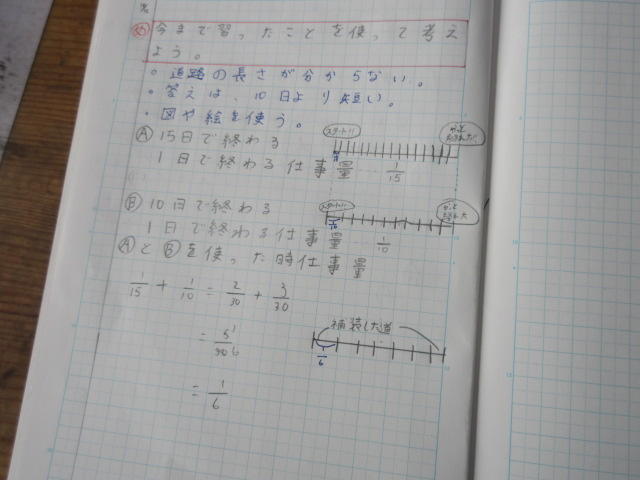 め 今まで習ったことを使って考え
よう。
・道路の長さが分からない。
・答えは、10日より短い。
・図や絵を使う。
Ⓐ 15日で終わる
スタート!!
1日で終わる仕事量 1/15
Ⓑ 10日で終わる
スタート!!
1/10
1日で終わる仕事量 1/10
ⒶとⒷを使った時仕事量
1/15 + 1/10 = 2/30 + 3/30
= 5/30 1 6
補装した道
1/6
= 1/6